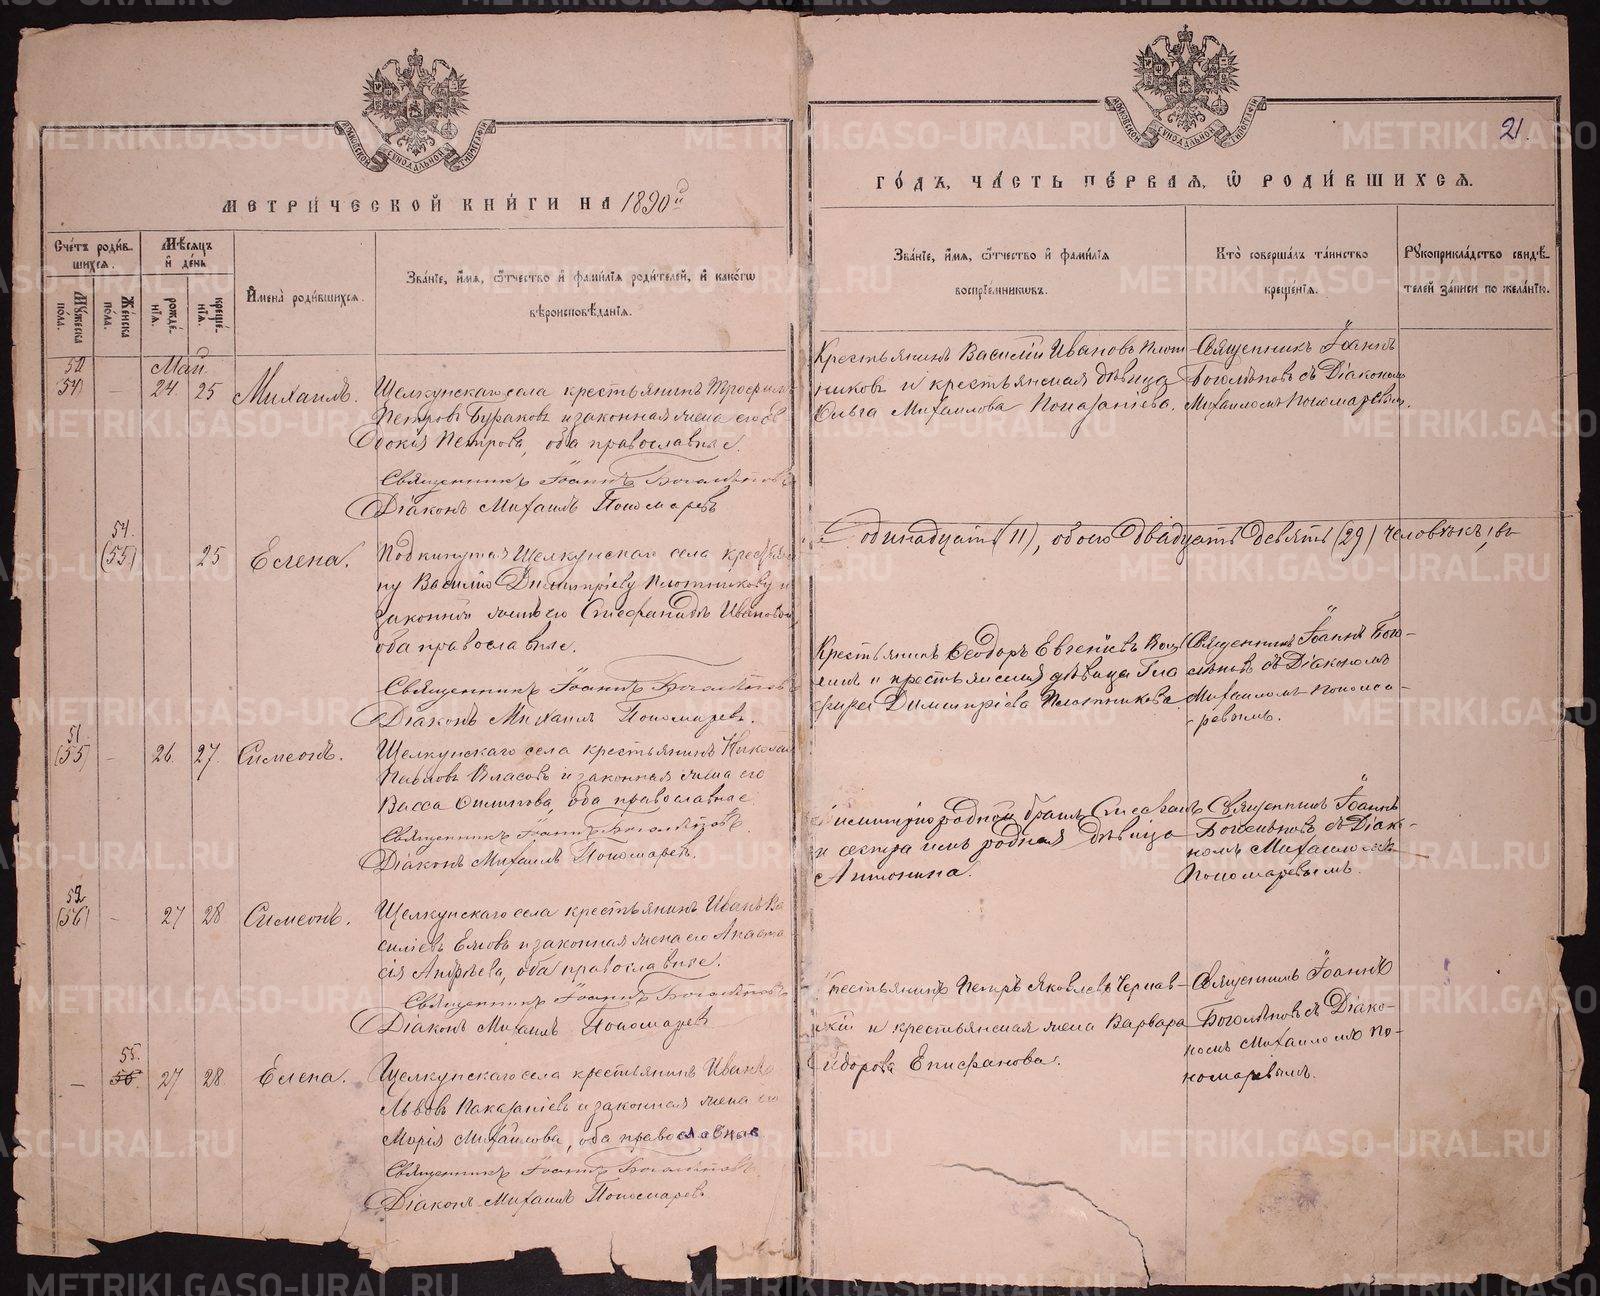 МЕТРИ́ЧЕСКОЙ КНИ́ГИ НА 1890й
Сче́тъ роди́вшихся.
Мѣ́сяцъ и де́нь
И҆мена̀ роди́вшихся.
Зва́нїе, и҆́мя, ѻ҆́тчество и҆ фами́лїя роди́телей, и҆ како́гѡ
вѣроисповѣ́данїя.
Мꙋ́жеска по́ла.
Же́нска по́ла.
рожде́нїя.
креще́нїя.
Май
52
(54) — 24 25 Михаилъ. Щелкунскаго села крестьянинъ
Петровъ Бураковъ и законная жена его Ев-
докія Петрова, оба православные.
Священникъ Іоаннъ Боголѣповъ
Діаконъ Михаилъ Пономаревъ
54.
(55) 25 Елена. Подкинутая Щелкунскаго села крестьяни-
ну Василію Димитріеву Плотникову и
законной женѣ его Степанидѣ Ивановой,
оба православные.
Священникъ Іоаннъ Боголѣповъ
Діаконъ Михаилъ Пономаревъ.
51.
(55) — 26 27. Симеонъ. Щелкунскаго села крестьянинъ Николай
Павловъ Власовъ и законная жена его
Васса Филипова, оба православные
Священникъ Іоаннъ Боголѣповъ
Діаконъ Михаилъ Пономаревъ.
52
(56) — 27 28 Симеонъ. Щелкунскаго села крестьянинъ Иванъ Ва-
силіевъ и законная жена его Анаста-
сія Андреева, оба православные.
Священникъ Іоаннъ Боголѣповъ
Діаконъ Михаилъ Пономаревъ
55.
— 56 27 28 Елена. Щелкунскаго села крестьянинъ Иванъ
Львовъ и законная жена его
Марія Михайлова, оба православные
Священникъ Іоаннъ Боголѣповъ
Діаконъ Михаилъ Пономаревъ
21.
ГО́ДЪ, ЧА́СТЬ ПЕ́РВАЯ, Ѽ РОДИ́ВШИХСЯ.
Зва́нїе, и҆́мя, ѻ҆́тчество и҆ фами́лїя
воспрїе́мникѡвъ.
Кто̀ соверша́лъ та́инство
креще́нїя.
Рꙋкоприкла́дство свидѣ́-
телей за́писи по жела́нїю.
Крестьянинъ Василій Ивановъ Плот-
никовъ и крестьянская дѣвица
Ольга Михаилова
Священникъ Іоаннъ
Боголѣповъ съ Діакономъ
Михаиломъ Пономаревымъ.
одинадцать (11), обоего двадцать девять (29) человѣкъ
Крестьянинъ Ѳеодоръ Евгеніевъ
и крестьянская дѣвица Гла-
фира Димитріева Плотникова
Священникъ Іоаннъ Бого-
лѣповъ съ Діакономъ
Михаиломъ Понома-
ревымъ.
родной братъ
и сестра имъ родная дѣвица
Антонина.
Священникъ Іоаннъ
Боголѣповъ съ Діако-
номъ Михаиломъ
Пономаревымъ.
крестьянинъ Петръ Яковлевъ Черняв-
скій и крестьянская жена Варвара
Епифанова.
Священникъ Іоаннъ
Боголѣповъ съ Діако-
номъ Михаиломъ По-
номаревымъ.
METRIKI.GASO-URAL.RU